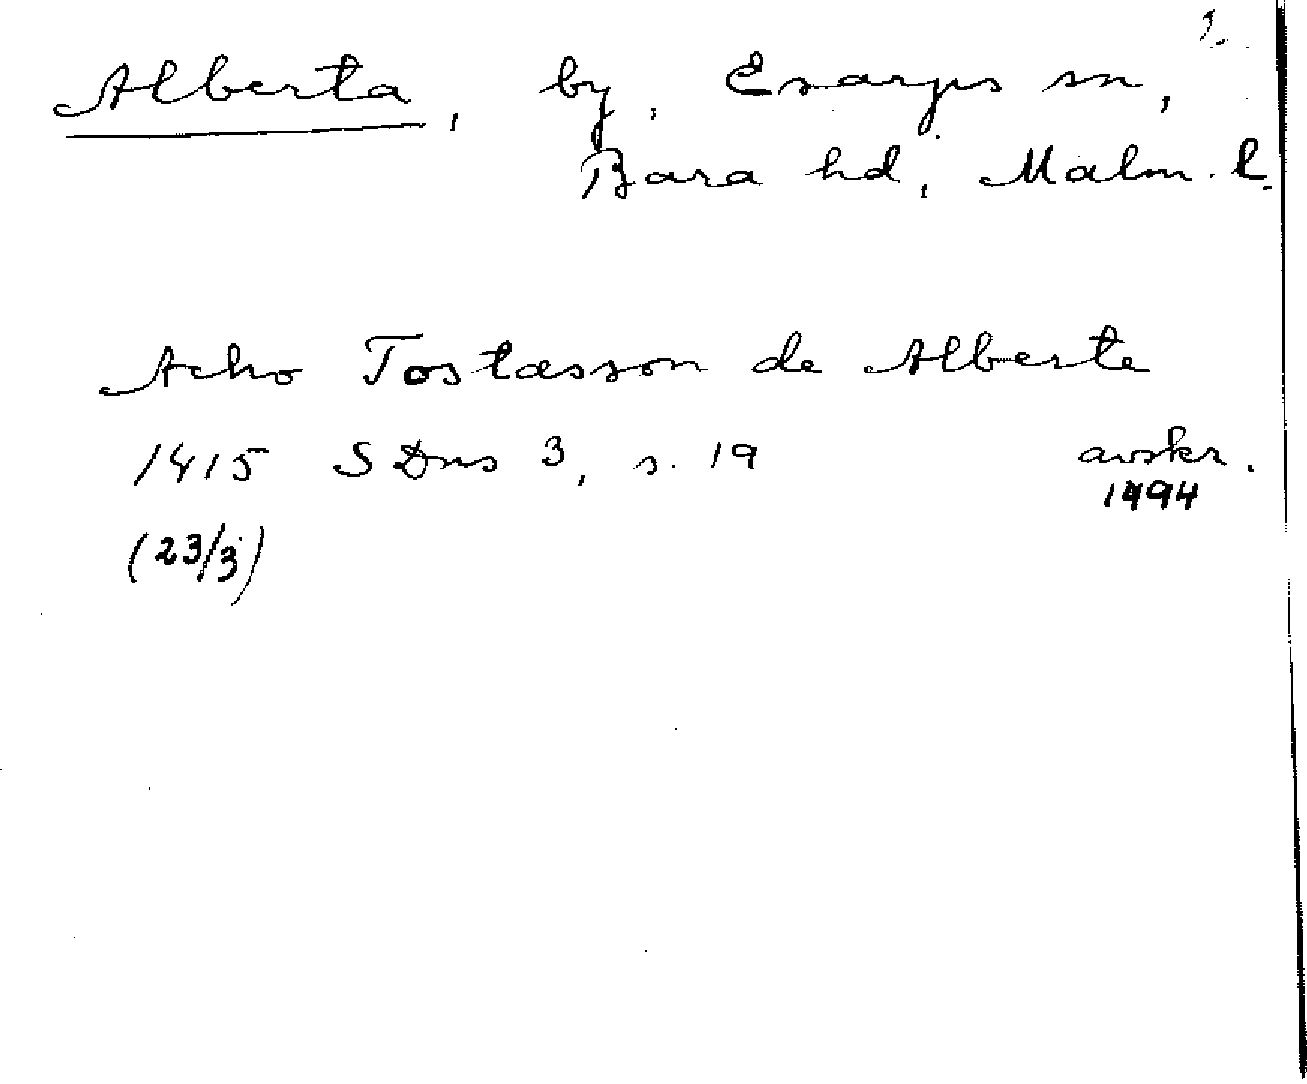 1.
Alberta, by, Esarps sn,
Bara hd, Malm. l.
Acho Tostæsson de Alberte
1415 SDns 3, s. 19 avskr.
1494
(23/3)